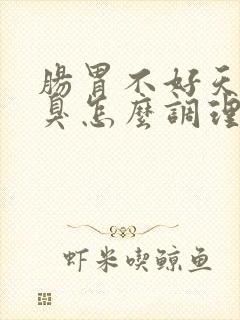 腸胃不好天
臭怎麼調理
虾米喫鲸鱼